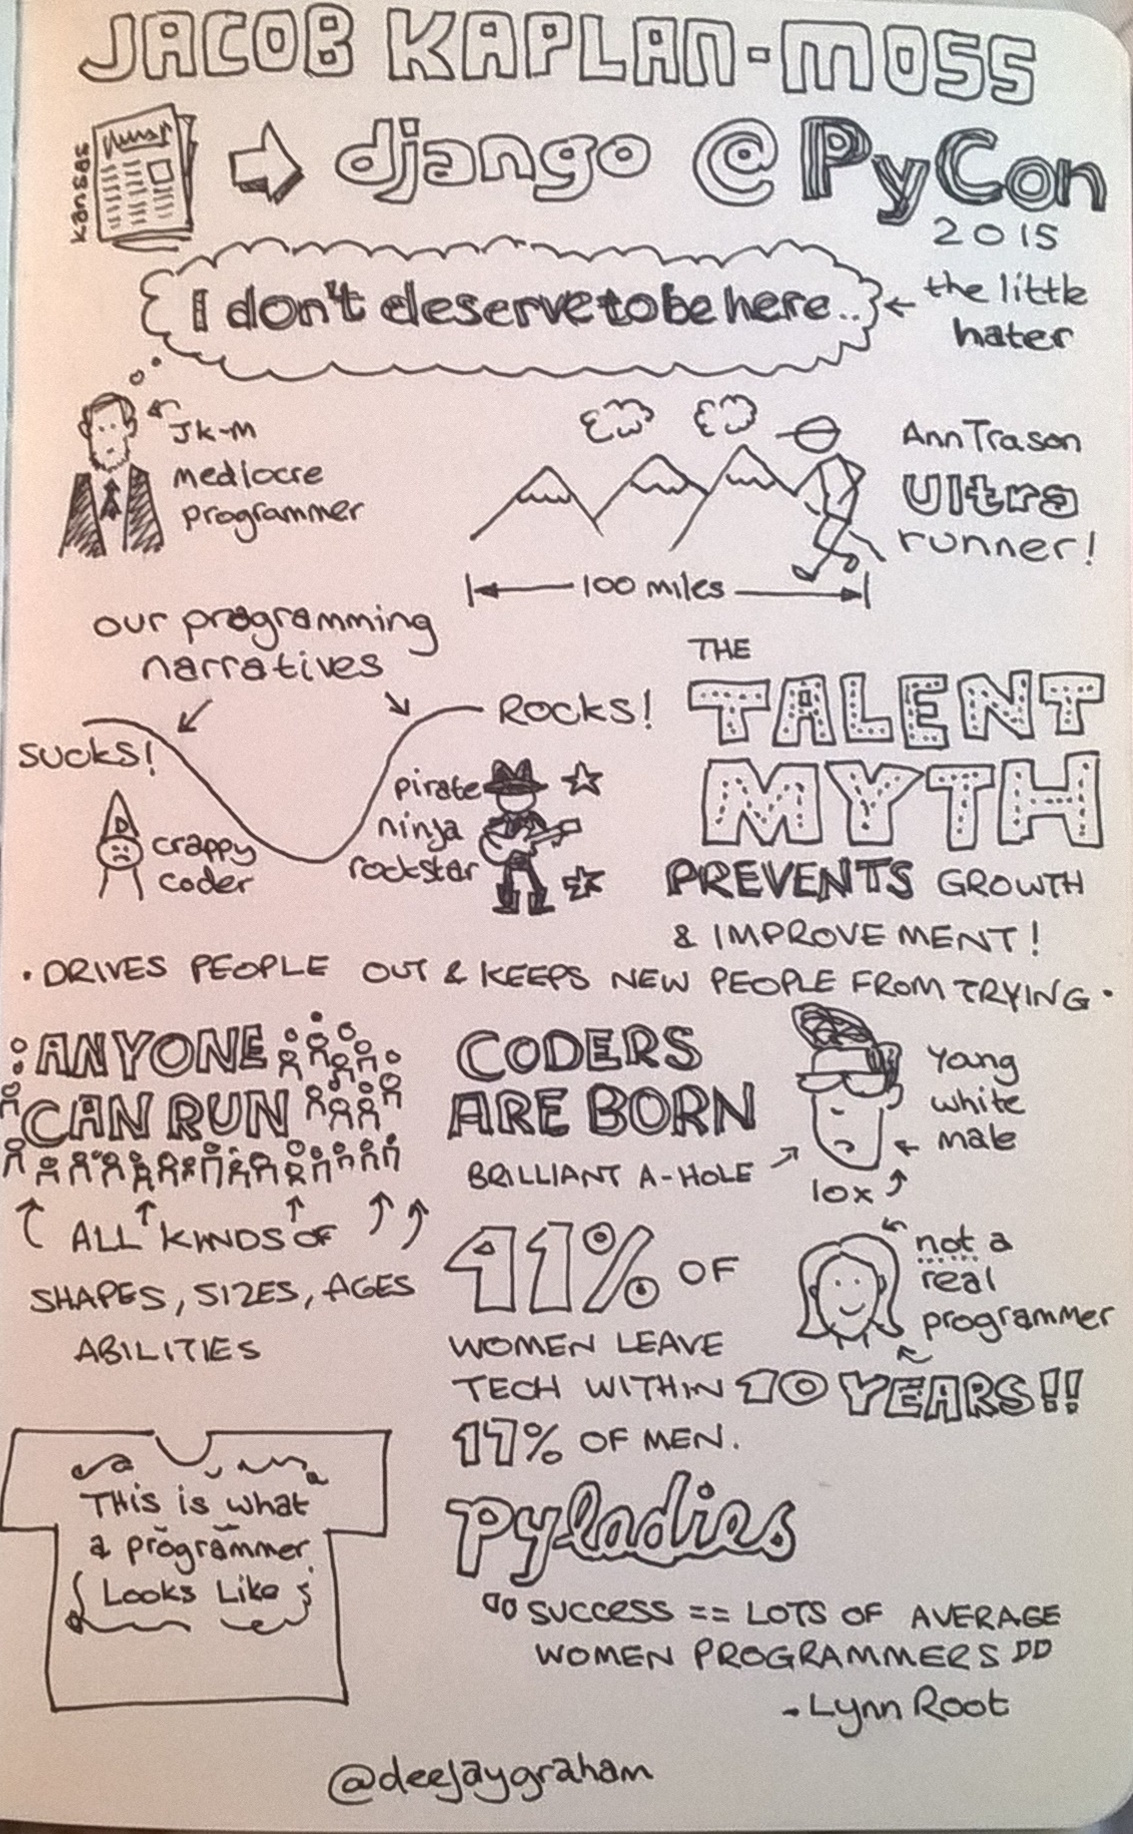 JACOB KAPLAN-MOSS
kansas
django @ PyCon
2015
I don't deserve to be here..
the little
hater
Jk-m
mediocre
programmer
Ann Trason
Ultra
runner!
100 miles
our programming
narratives
SUCKS!
ROCKS!
D
crappy
coder
pirate
ninja
rockstar
THE
TALENT
MYTH
PREVENTS GROWTH
& IMPROVEMENT!
• DRIVES PEOPLE OUT & KEEPS NEW PEOPLE FROM TRYING •
ANYONE
CAN RUN
ALL KINDS OF
SHAPES, SIZES, AGES
ABILITIES
CODERS
ARE BORN
BRILLIANT A-HOLE
Yang
white
male
10x
41% OF
WOMEN LEAVE
TECH WITHIN 10 YEARS!!
17% OF MEN.
not a
real
programmer
THis is what
a programmer
Looks Like
Pyladies
"SUCCESS == LOTS OF AVERAGE
WOMEN PROGRAMMERS"
- Lynn Root
@deejaygraham